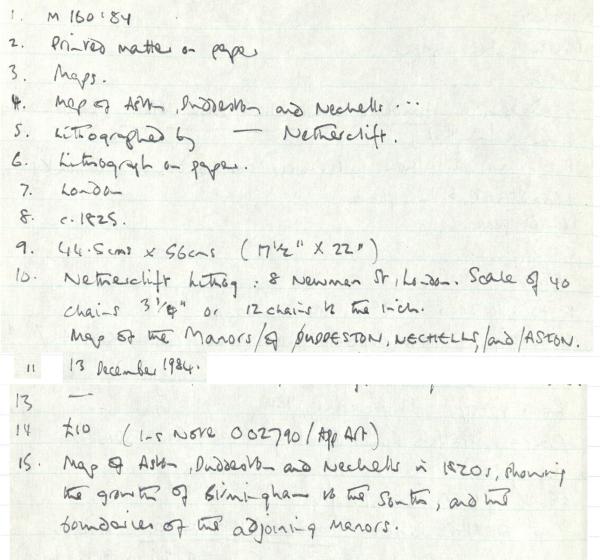 1. M 160'84
2. Printed matter on paper
3. Maps.
4. Map of Aston, Duddeston and Nechells ...
5. Lithographed by — Netherclift.
6. Lithograph on paper.
7. London
8. c.1825.
9. 44.5cms x 56cms (17½" X 22")
10. Netherclift Lithog: 8 Newman St, London. Scale of 40
chains 3¼" or 12 chains to the inch.
Map of the Manors/of DUDDESTON, NECHELLS,/and/ASTON.
11 13 December 1984.
13 —
14 £10 (Ins Note 002790/App Art)
15. Map of Aston, Duddeston and Nechells in 1820s, showing
the growth of Birmingham to the South, and the
boundaries of the adjoining Manors.